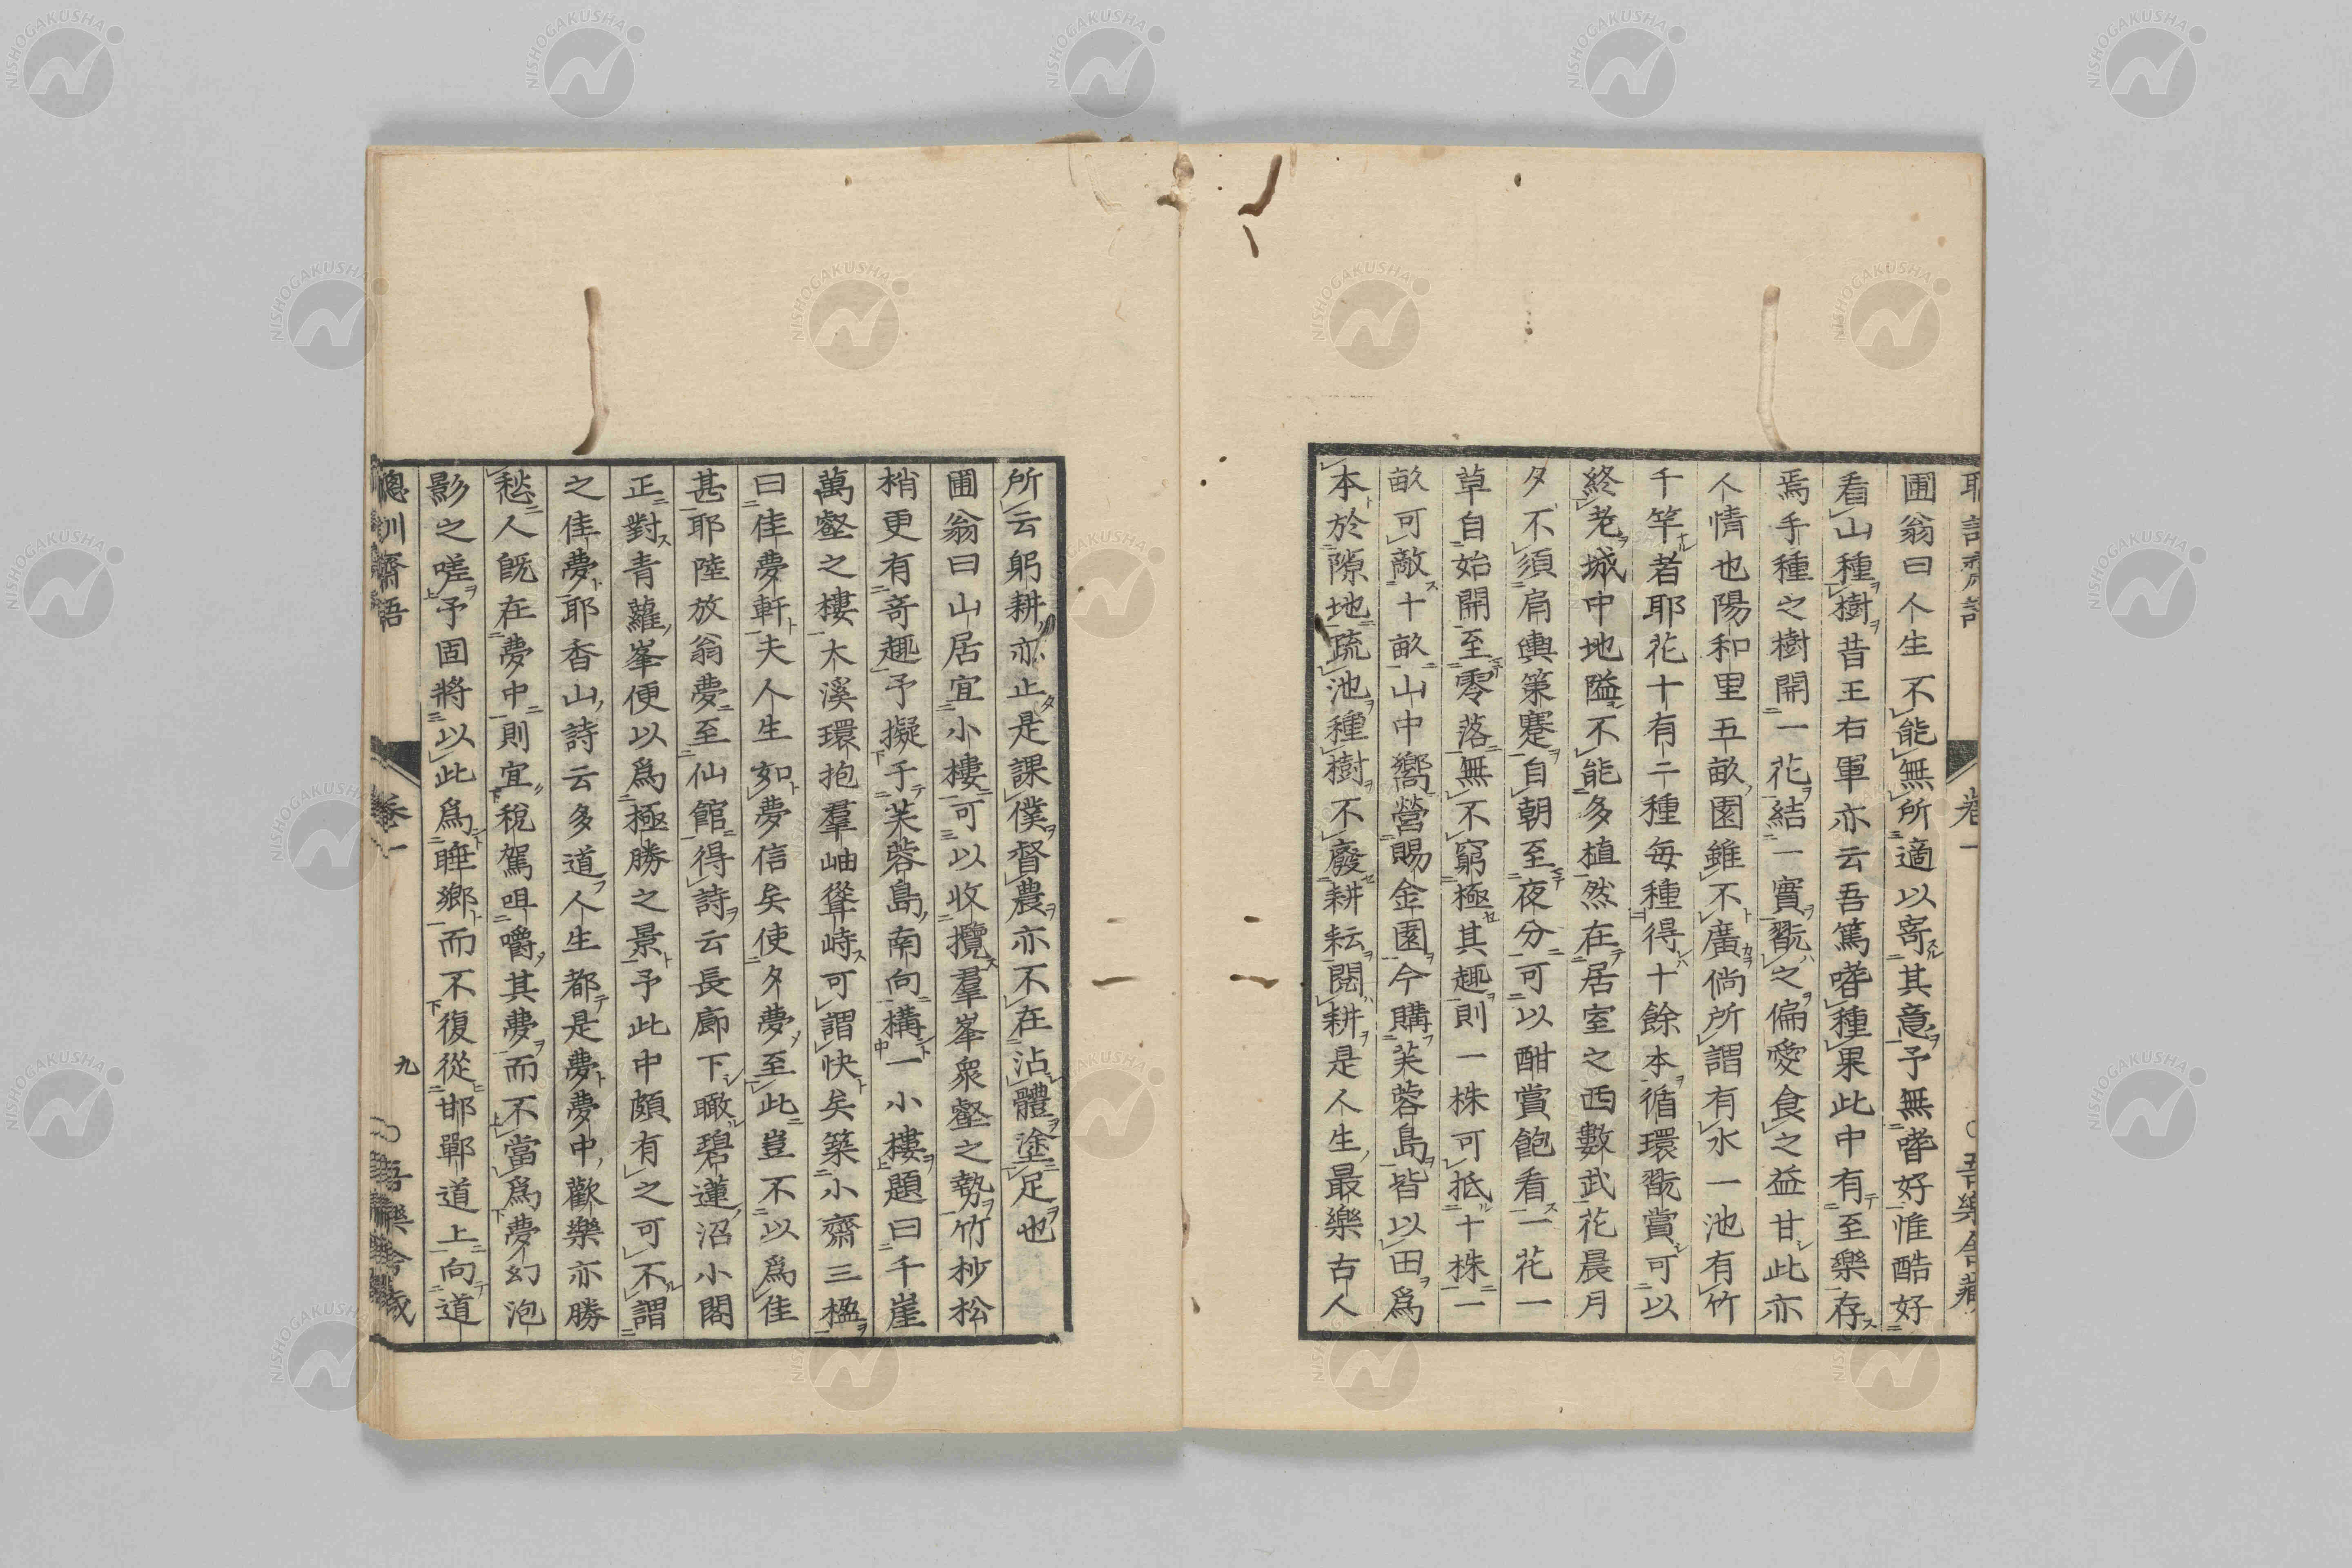 圃翁曰人生不能無所適以寄其意予無嗜好惟酷好
看山種樹昔王右軍亦云吾篤嗜種果此中有至樂存
焉手種之樹開一花結一實翫之偏愛食之益甘此亦
人情也陽和里五畝園雖不廣倘所謂有水一池有竹
千竿者耶花十有二種每種得十餘本循環翫賞可以
終老城中地隘不能多植然在居室之西數武花晨月
夕不須肩輿策蹇自朝至夜分可以酣賞飽看一花一
草自始開至零落無不窮極其趣則一株可抵十株一
畝可敵十畝山中嚮營賜金園今購芙蓉島皆以田爲
本於隙地疏池種樹不廢耕耘閱耕是人生最樂古人
所云躬耕亦止是課僕督農亦不在沾體塗足也
圃翁曰山居宜小樓可以收攬羣峯衆壑之勢竹杪松
梢更有奇趣予擬于芙蓉島南向構一小樓題曰千崖
萬壑之樓大溪環抱羣岫聳峙可謂快矣築小齋三楹
曰佳夢軒夫人生如夢信矣使夕夢至此豈不以爲佳
甚耶陸放翁夢至仙館得詩云長廊下瞰碧蓮沼小閣
正對青蘿峯便以爲極勝之景予此中頗有之可不謂
之佳夢耶香山詩云多道人生都是夢夢中歡樂亦勝
愁人既在夢中則宜稅駕咀嚼其夢而不當爲夢幻泡
影之嗟予固將以此爲睡鄉而不復從邯鄲道上向道
聰訓齋語
卷一
九
吾樂舍藏
NISHOGAKUSHA